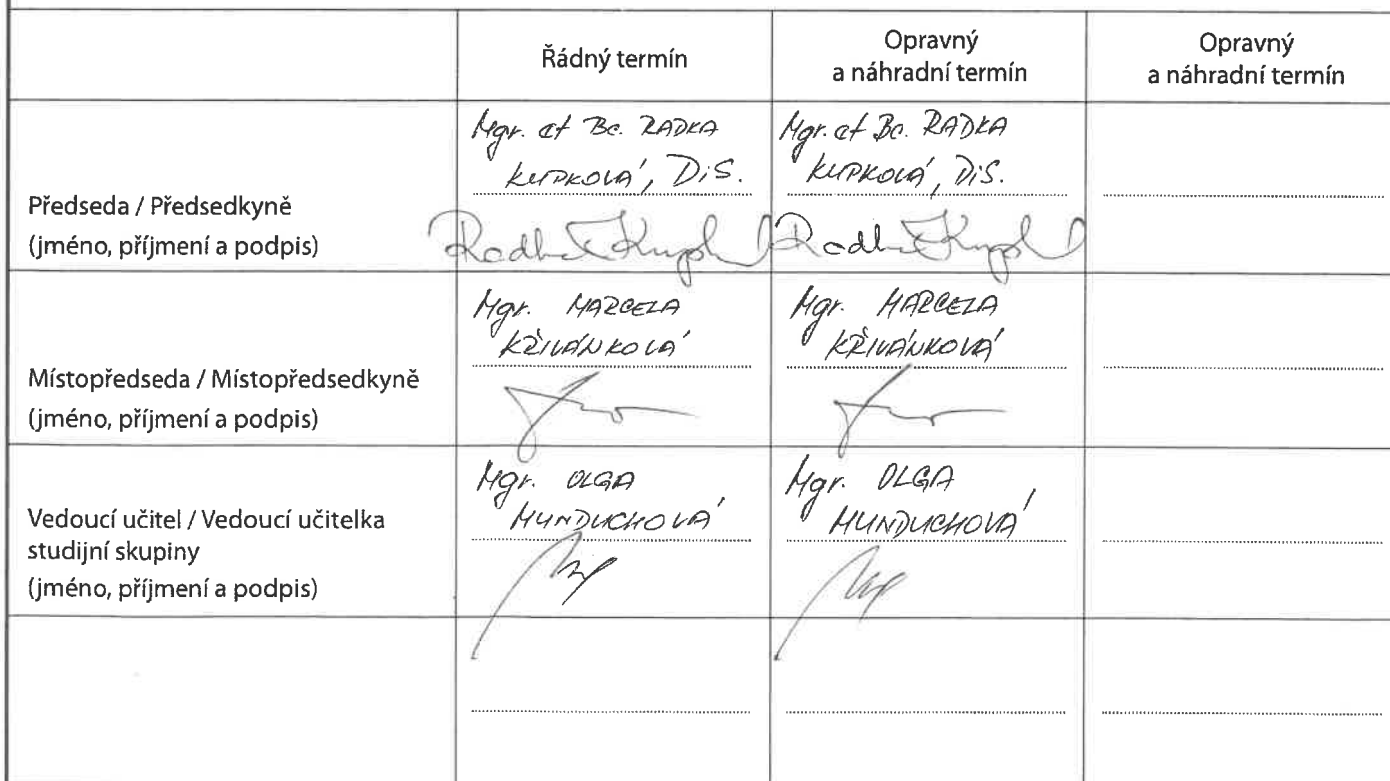 Řádný termín
Opravný
a náhradní termín
Opravný
a náhradní termín
Předseda / Předsedkyně
(jméno, příjmení a podpis)
Mgr. et Bc. RADKA
KUPKOVÁ, DiS.
Mgr. et Bc. RADKA
KUPKOVÁ, DiS.
Místopředseda / Místopředsedkyně
(jméno, příjmení a podpis)
Mgr. MARCELA
KŘIVÁNKOVÁ
Mgr. MARCELA
KŘIVÁNKOVÁ
Vedoucí učitel / Vedoucí učitelka
studijní skupiny
(jméno, příjmení a podpis)
Mgr. OLGA
MUNDUCHOVÁ
Mgr. OLGA
MUNDUCHOVÁ